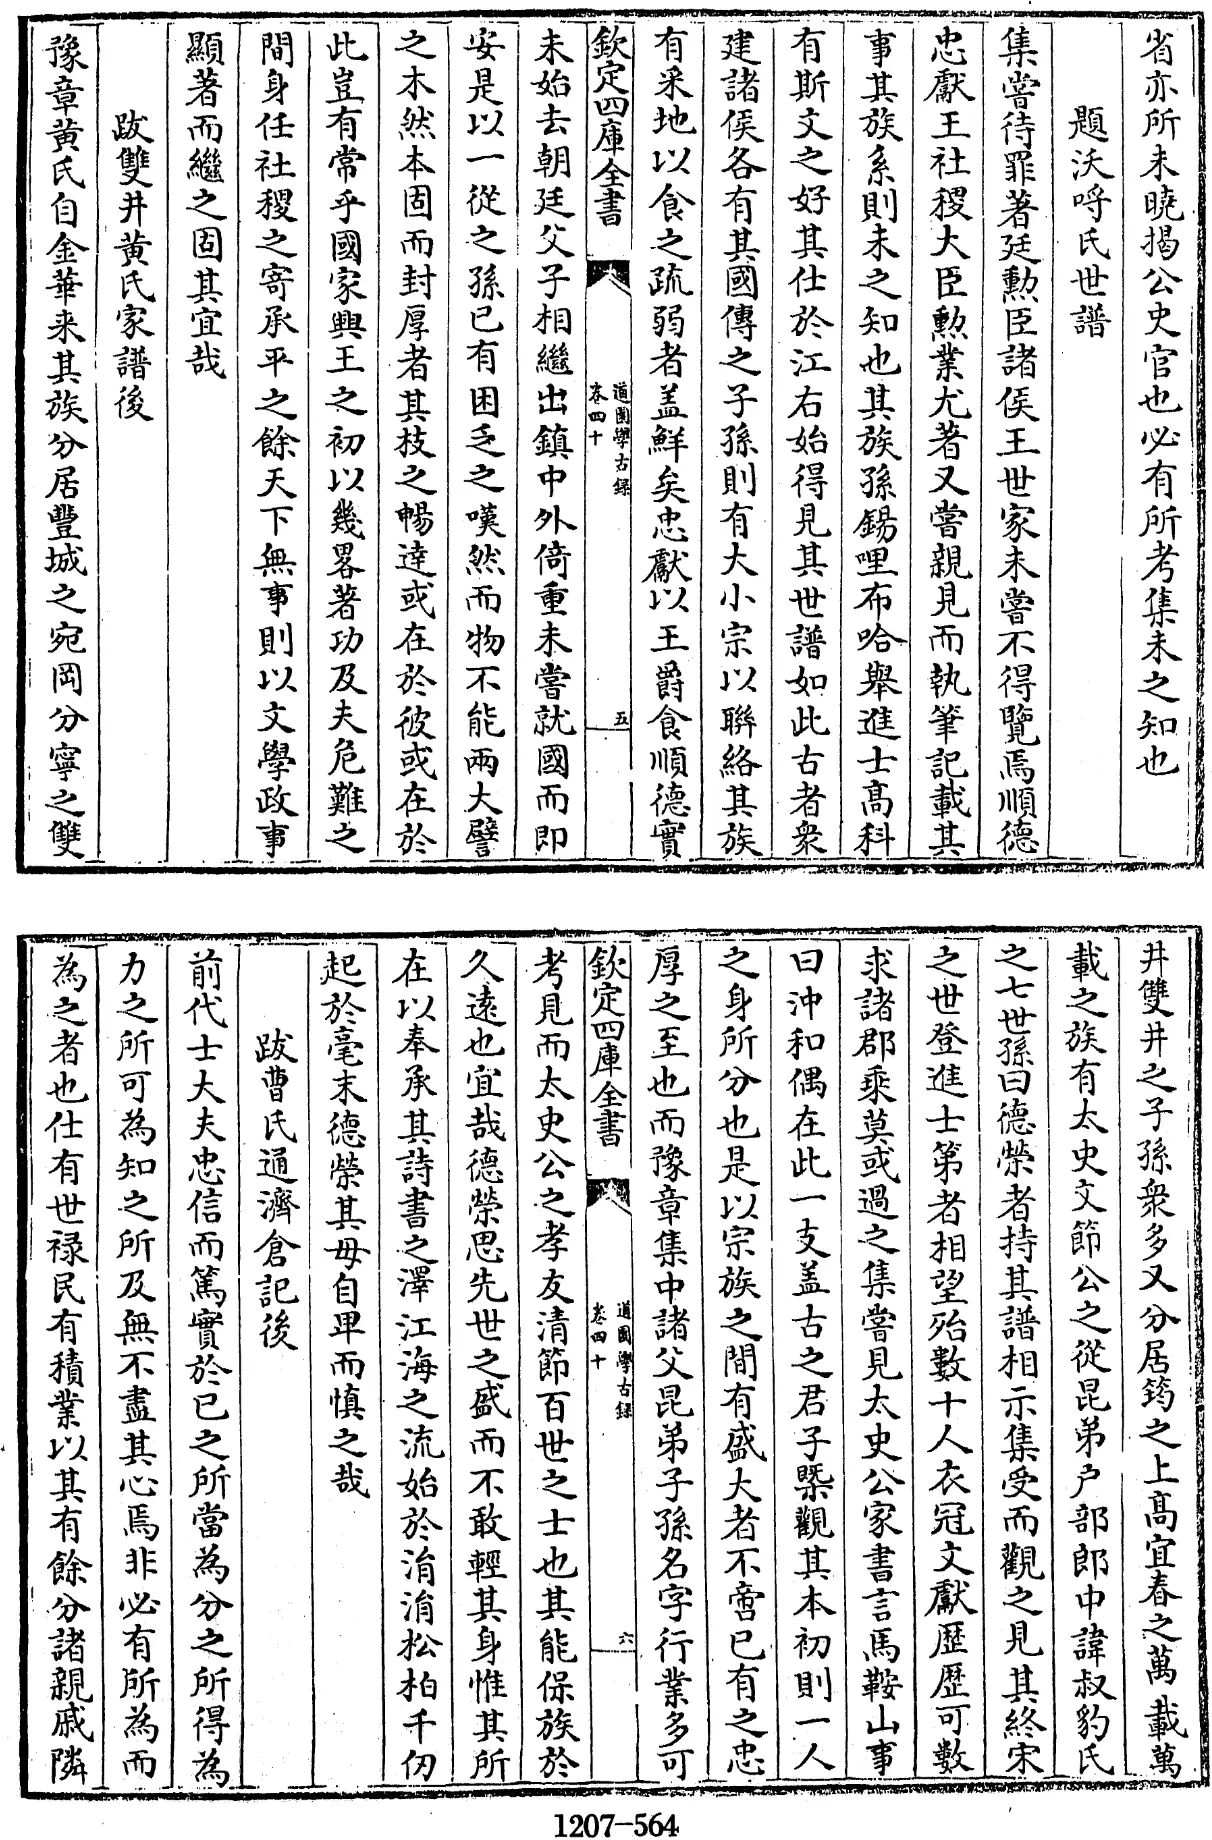 省亦所未曉揭公史官也必有所考集未之知也
題沃呼氏世譜
集嘗待罪著廷勲臣諸侯王世家未嘗不得覽焉順德
忠獻王社稷大臣勲業尤著又嘗親見而執筆記載其
事其族系則未之知也其族孫錫哩布哈舉進士髙科
有斯文之好其仕於江右始得見其世譜如此古者衆
建諸侯各有其國傳之子孫則有大小宗以聯絡其族
有采地以食之疏弱者盖鮮矣忠獻以王爵食順德實
欽定四庫全書
道園學古録
卷四十
五
未始去朝廷父子相繼出鎮中外倚重未嘗就國而即
安是以一從之孫已有困乏之嘆然而物不能兩大譬
之木然本固而封厚者其枝之暢達或在於彼或在於
此豈有常乎國家興王之初以幾畧著功及夫危難之
間身任社稷之寄承平之餘天下無事則以文學政事
顯著而繼之固其宜哉
跋雙井黄氏家譜後
豫章黄氏自金華来其族分居豐城之宛岡分寧之雙
井雙井之子孫衆多又分居筠之上髙宜春之萬載萬
載之族有太史文節公之從昆弟户部郎中諱叔豹氏
之七世孫曰德榮者持其譜相示集受而觀之見其終宋
之世登進士第者相望殆數十人衣冠文獻歴歴可數
求諸郡乘莫或過之集嘗見太史公家書言馬鞍山事
曰沖和偶在此一支盖古之君子槩觀其本初則一人
之身所分也是以宗族之間有盛大者不啻已有之忠
厚之至也而豫章集中諸父昆弟子孫名字行業多可
欽定四庫全書
道園學古録
卷四十
六
考見而太史公之孝友清節百世之士也其能保族於
久遠也宜哉德榮思先世之盛而不敢輕其身惟其所
在以奉承其詩書之澤江海之流始於涓涓松柏千仞
起於毫末德榮其毋自畀而慎之哉
跋曹氏通濟倉記後
前代士大夫忠信而篤實於已之所當為分之所得為
力之所可為知之所及無不盡其心焉非必有所為而
為之者也仕有世禄民有積業以其有餘分諸親戚隣
1207-564